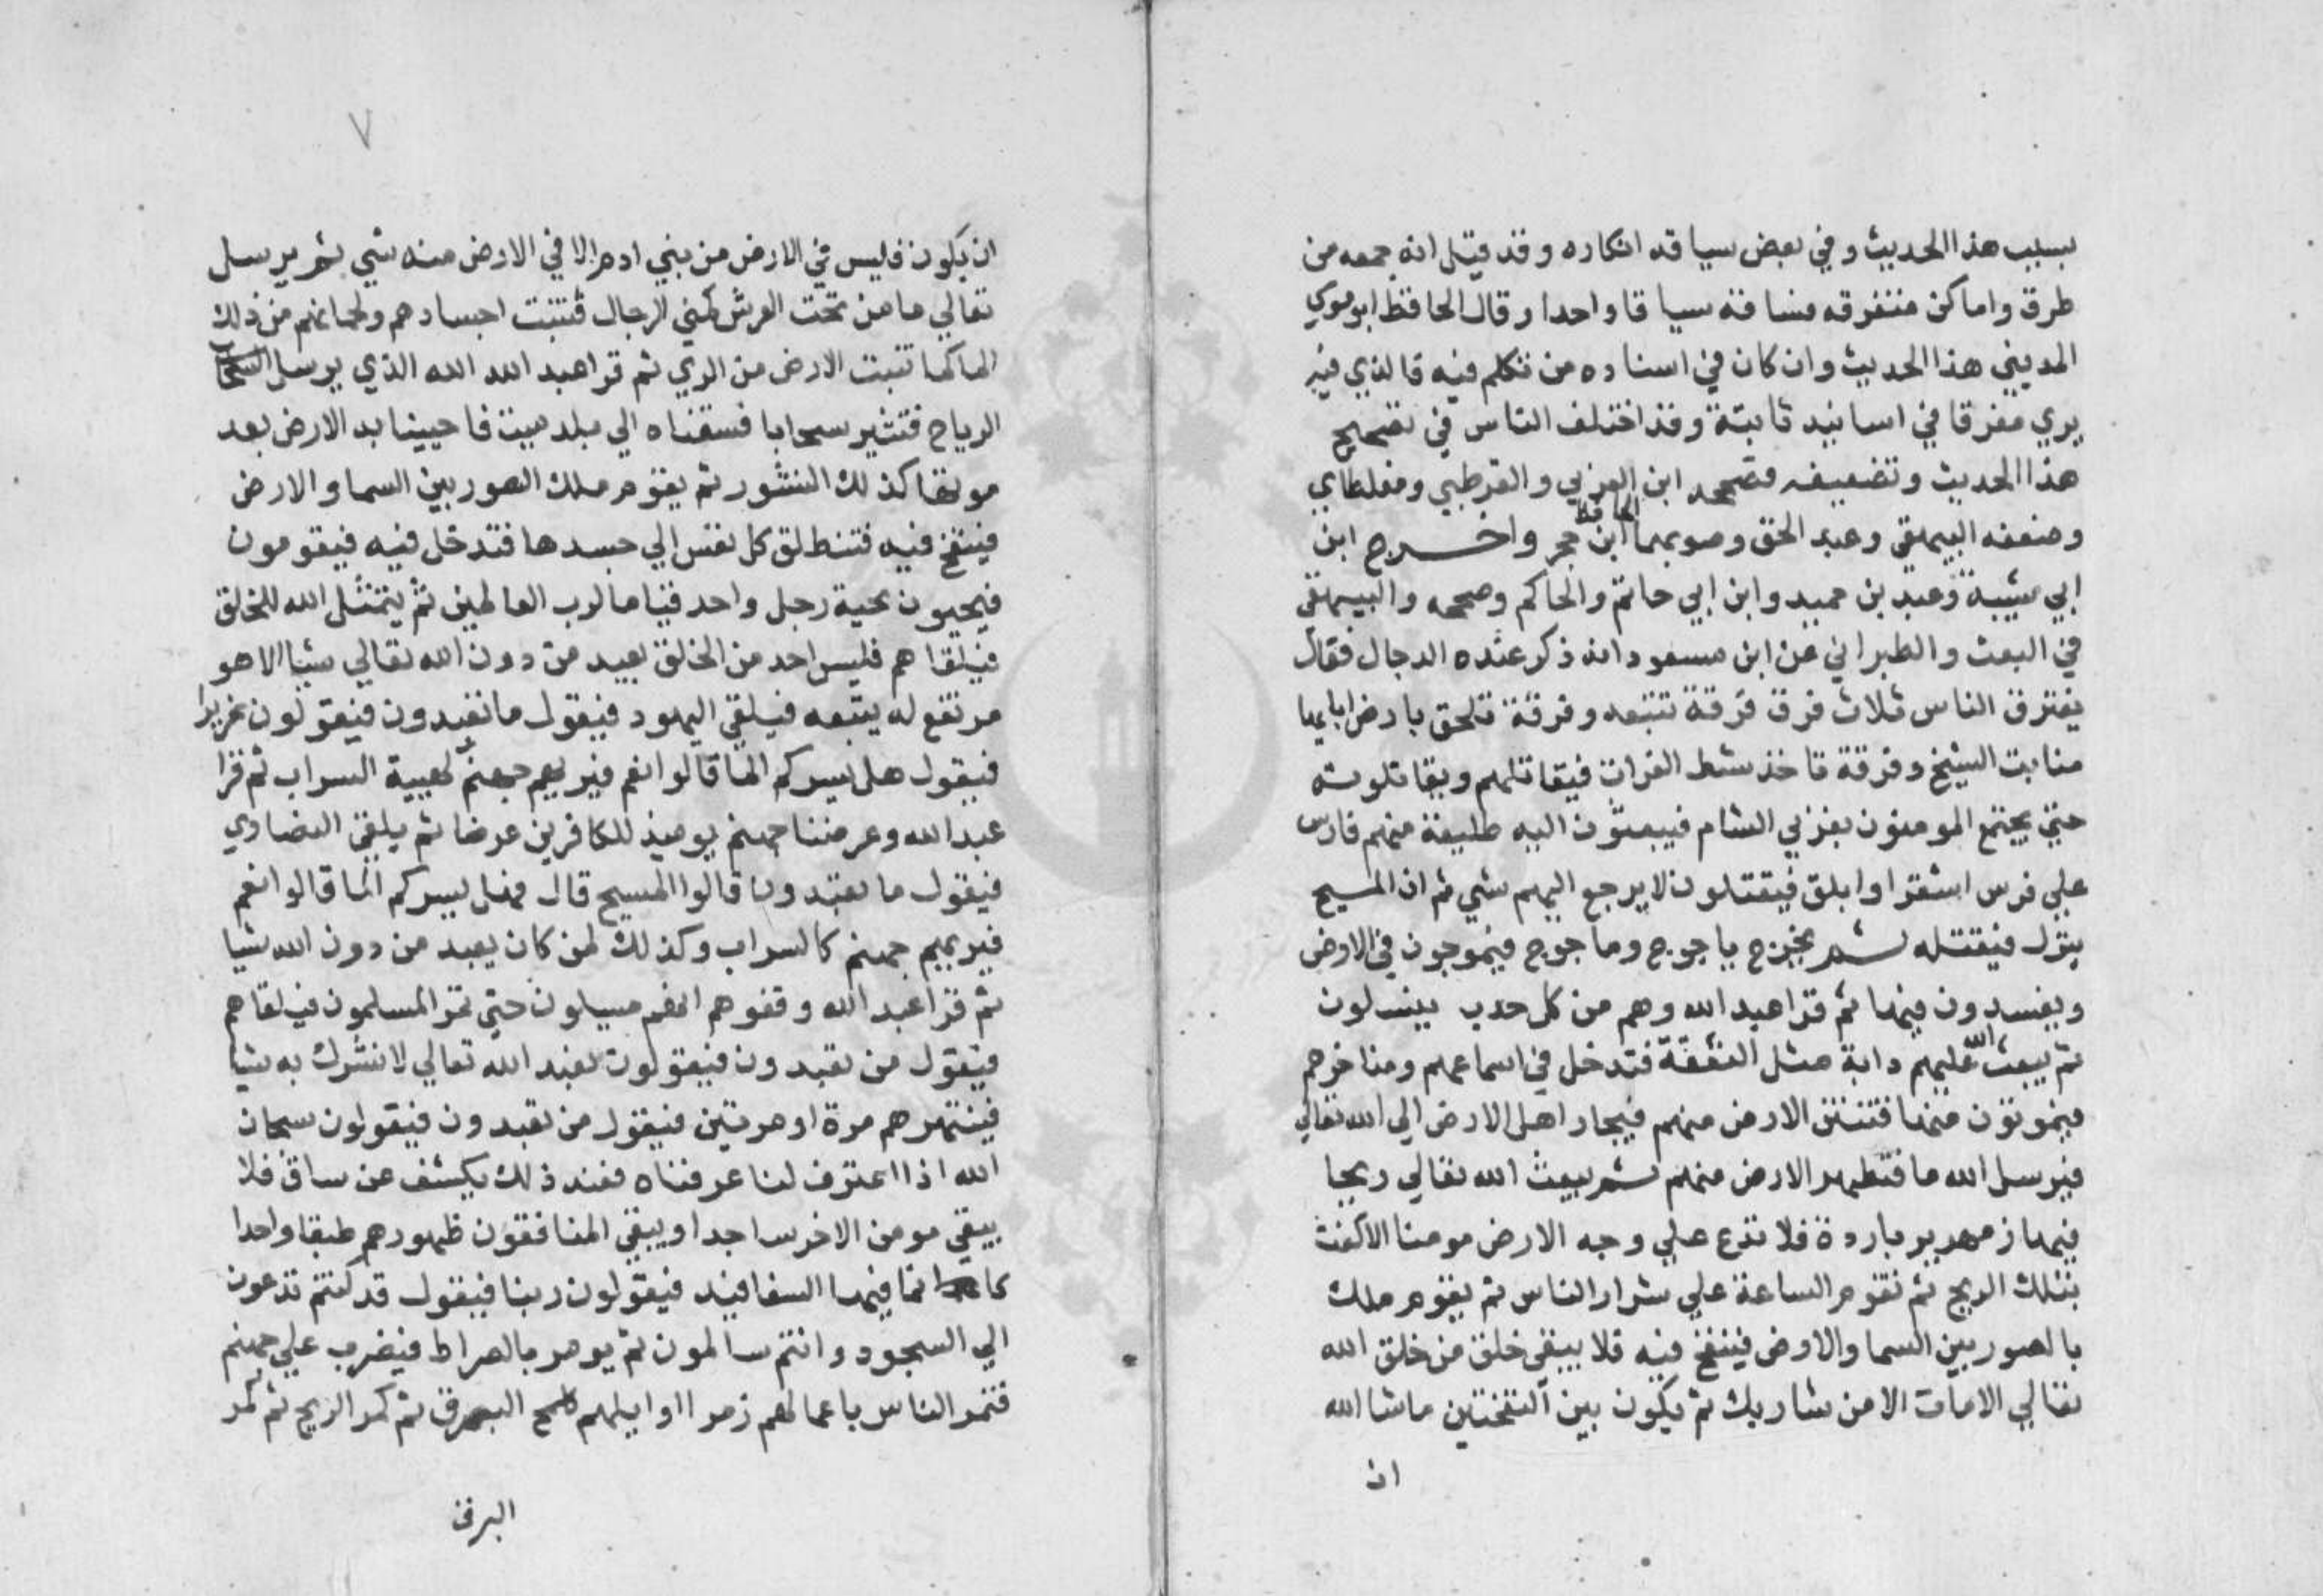 بسبب هذا الحديث وفي بعض سياقه انكاره وقد قيل انه جمعه من
طرق واماكن متفرقه فساقه سياقا واحدا وقال الحافظ ابو موسي
المديني هذا الحديث وان كان في اسناده من تكلم فيه فالذي فيه
يري مفرقا في اسانيد ثابتة وقد اختلف الناس في تصحيح
هذا الحديث وتضعيفه فصححه ابن العربي والقرطبي ومغلطاي
وضعفه البيهقي وعبد الحق وصوبهما الحافظ ابن حجر واخرج ابن
ابي شيبة وعبد بن حميد وابن ابي حاتم والحاكم وصححه والبيهقي
في البعث والطبراني عن ابن مسعود انه ذكر عنده الدجال فقال
يفترق الناس ثلاث فرق فرقة تتبعه وفرقة تلحق بارض ابايها
منابت الشيخ وفرقة تاخذ شط الفرات فيقاتلهم ويقاتلونه
حتي يجتمع المومنون بغربي الشام فيبعثون اليه طليعة منهم فارس
علي فرس اشقر او ابلق فيقتلون لا يرجع اليهم شي ثم ان المسيح
ينزل فيقتله ثم يخرج ياجوج وماجوج فيموجون في الارض
ويفسدون فيها ثم قرا عبد الله وهم من كل حدب ينسلون
ثم يبعث الله عليهم دابة مثل النغفة فتدخل في اسماعهم ومناخرهم
فيموتون منها فتنتن الارض منهم فيجار اهل الارض الي الله تعالي
فيرسل الله ما فتطهر الارض منهم ثم يبعث الله تعالي ريحا
فيها زمهرير باردة فلا تدع علي وجه الارض مومنا الا كفت
بتلك الريح ثم تقوم الساعة علي شرار الناس ثم يقوم ملك
بالصور بين السما والارض فينفخ فيه فلا يبقي خلق من خلق الله
تعالي الا مات الا من شا ربك ثم يكون بين النفختين ما شا الله
ان
٧
ان يكون فليس في الارض من بني ادم الا في الارض منه شي ثم يرسل
تعالي ما من تحت العرش كمني الرجال فتنبت اجسادهم ولحمانهم من ذلك
الما كما تنبت الارض من الري ثم قرا عبد الله الله الذي يرسل
الرياح فتثير سحابا فسقناه الي بلد ميت فاحيينا به الارض بعد
موتها كذلك النشور ثم يقوم ملك الصور بين السما والارض
فينفخ فيه فتنطلق كل نفس الي جسدها فتدخل فيه فيقومون
فيحيون تحية رجل واحد قياما لرب العالمين ثم يتمثل الله للخلق
فيلقاهم فليس احد من الخلق يعبد من دون الله تعالي شيا الا هو
مرتفع له يتبعه فيلقي اليهود فيقول ما تعبدون فيقولون عزيرا
فيقول هل يسركم الما قالوا نعم فيريهم جهنم كهيية السراب ثم قرا
عبد الله وعرضنا جهنم يوميذ للكافرين عرضا ثم يلقي النصاري
فيقول ما تعبدون قالوا المسيح قال فهل يسركم الما قالوا نعم
فيريهم جهنم كالسراب وكذلك لمن كان يعبد من دون الله شيا
ثم قرا عبد الله وقفوهم انهم مسيلون حتي تمر المسلمون فيلقاهم
فيقول من تعبدون فيقولون نعبد الله تعالي لا نشرك به شيا
فينتهرهم مرة او مرتين فيقول من تعبدون فيقولون سبحان
الله اذا اعترف لنا عرفناه فعند ذلك يكشف عن ساق فلا
يبقي مومن الا خر ساجدا ويبقي المنافقون ظهورهم طبقا واحدا
كانما فيها السفافيد فيقولون ربنا فيقول قد كنتم تدعون
الي السجود وانتم سالمون ثم يومر بالصراط فيضرب علي جهنم
فتمر الناس باعمالهم زمرا اوايلهم كلمح البرق ثم كمر الريح ثم كمر
البرق